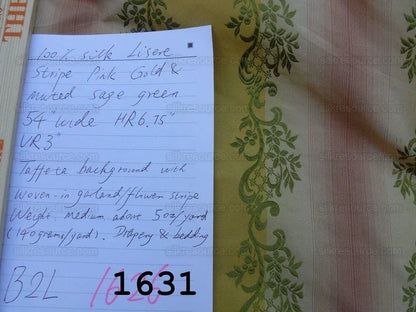 100% silk Lisere
Stripe Pink Gold &
muted sage green
54" wide HR6.75"
VR3"
Taffeta background with
Woven-in garland/flower stripe
Weight medium about 5oz/yard
(140grams/yard). Drapery & bedding
B2L 1626
1631